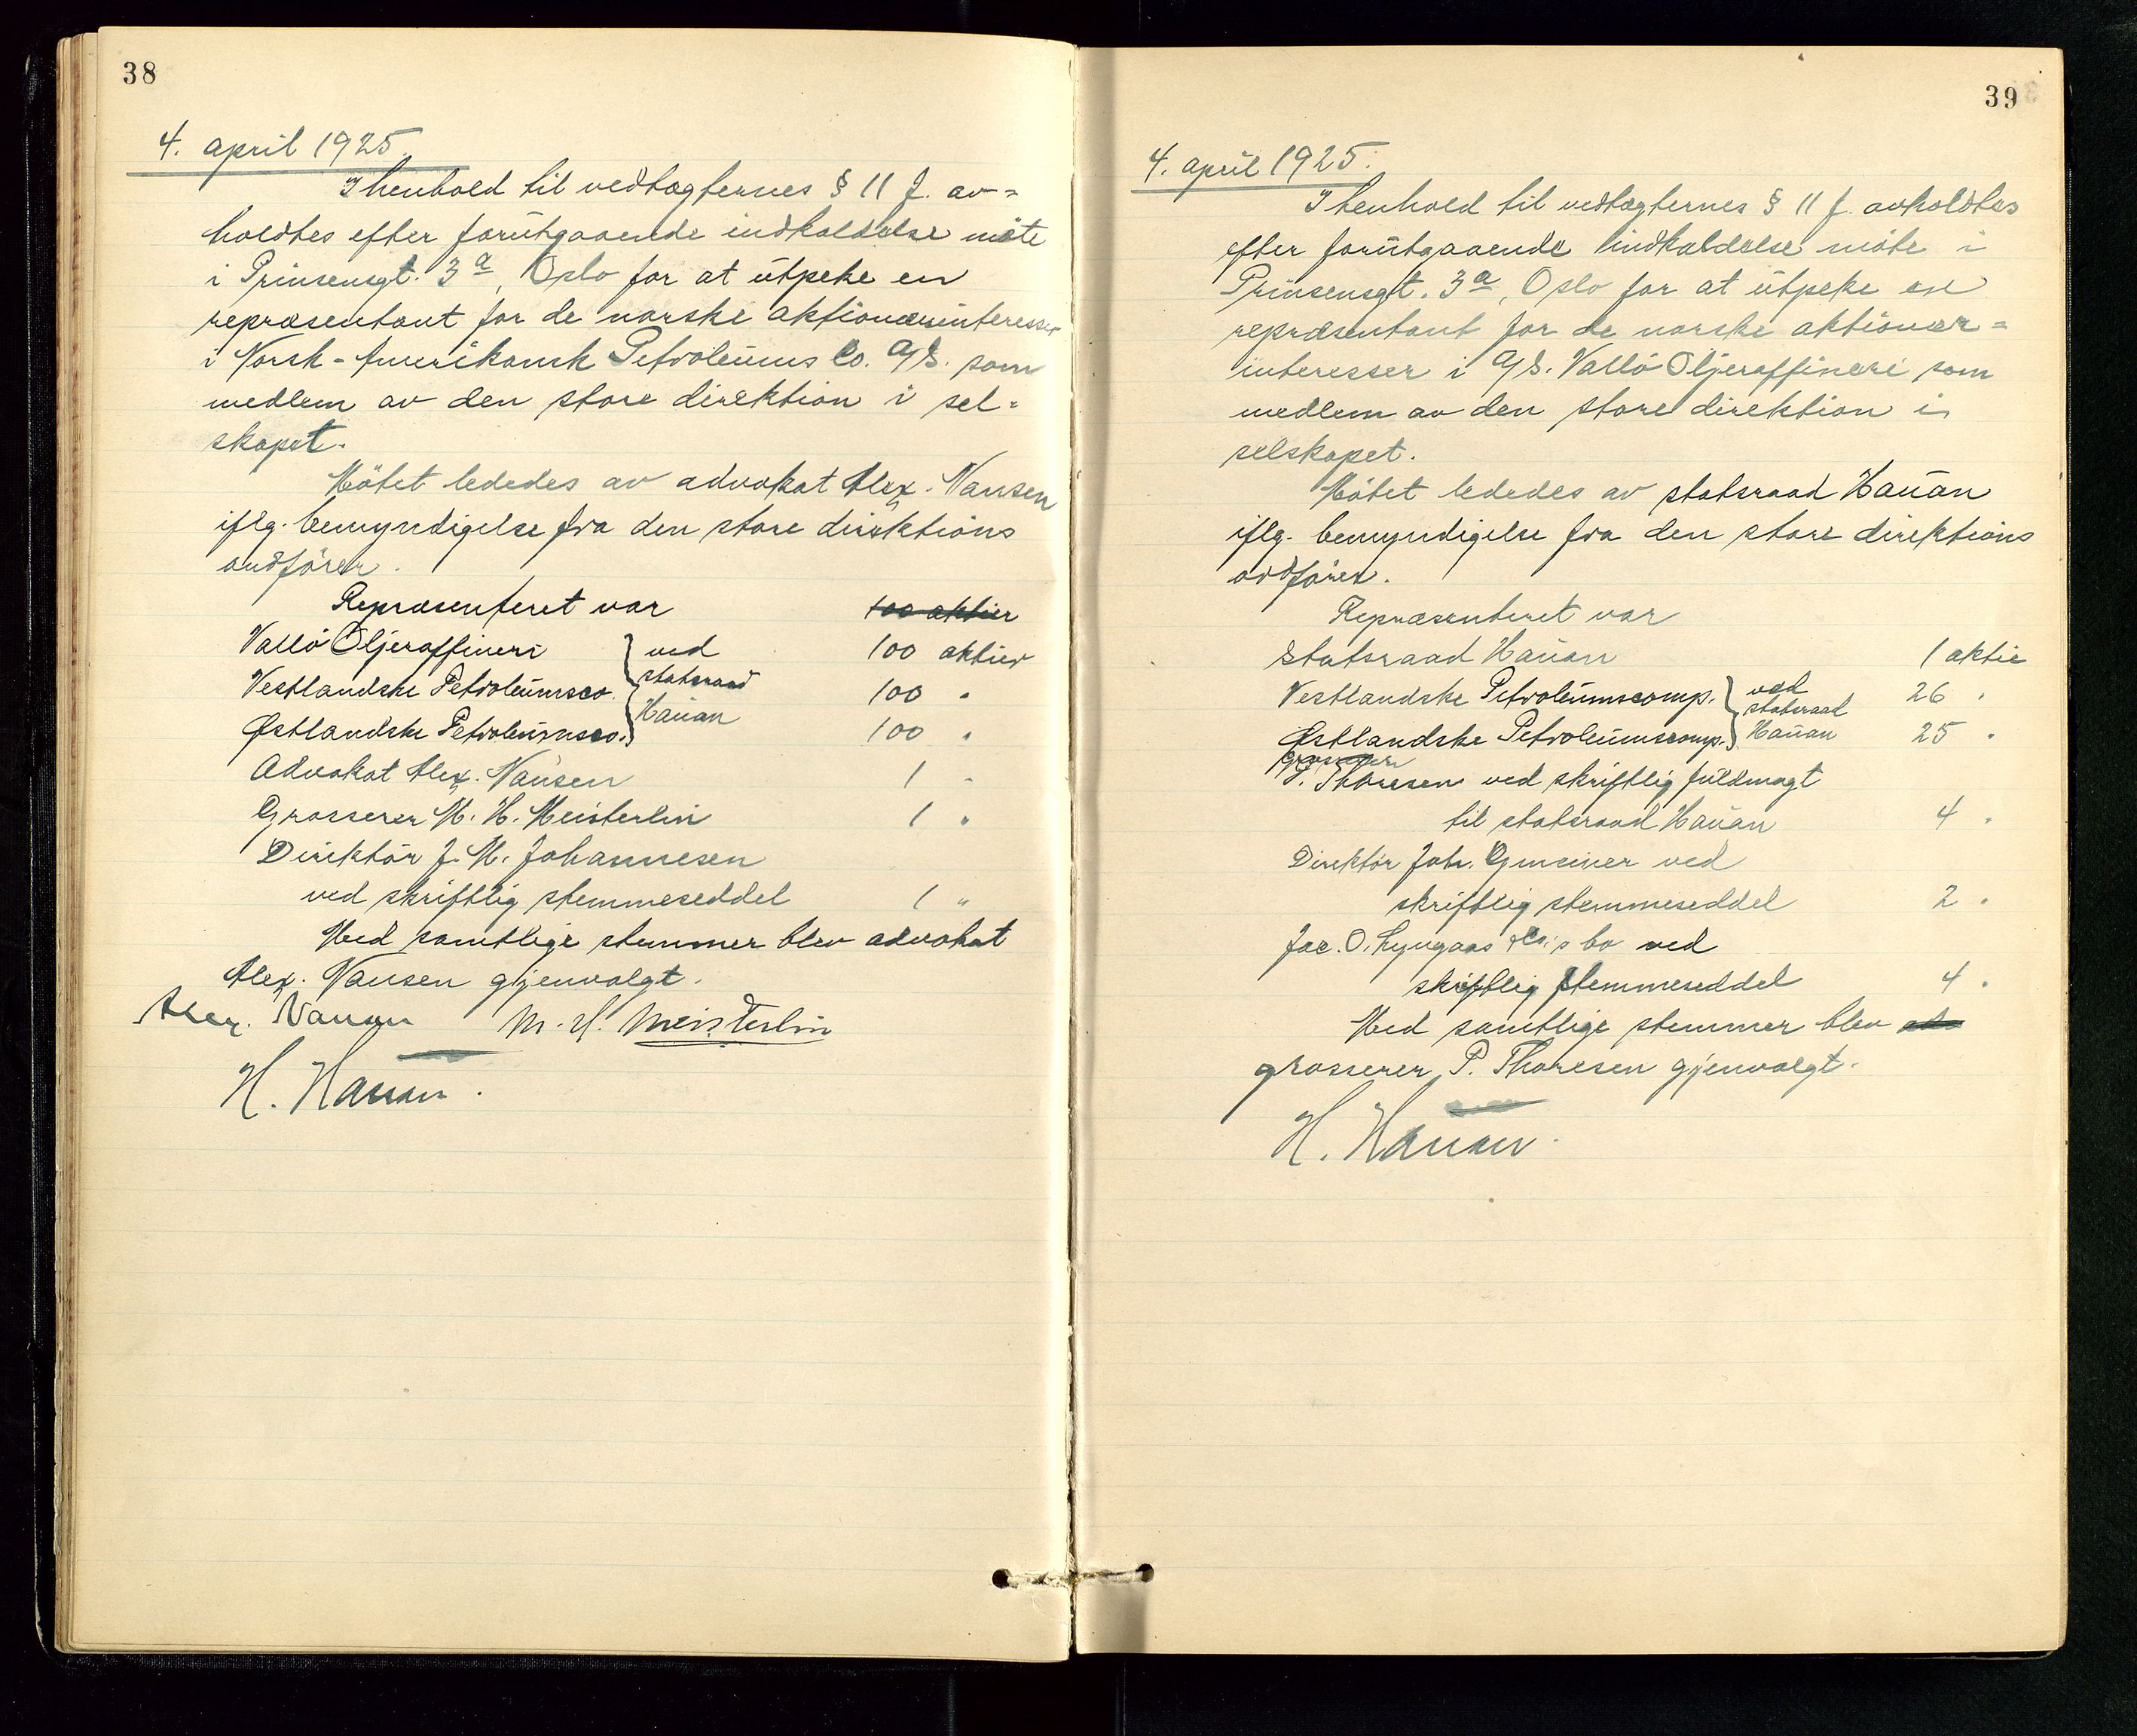 38
4. april 1925.
I henhold til vedtægternes § 11 f. av=
holdtes efter forutgaaende indkaldelse møte
i Prinsensgt. 3a, Oslo for at utpeke en
repræsentant for de norske aktionærinteresser
i Norsk-Amerikansk Petroleums Co. A/S. som
medlem av den store direktion i sel=
skapet.
Møtet lededes av advokat Alex. Nansen
iflg. bemyndigelse fra den store direktions
ordfører.
Repræsenteret var 100 aktier
Vallö Oljeraffineri } ved 100 aktier
Vestlandske Petroleumsco. } statsraad 100 "
Østlandske Petroleumsco. } Hauan 100 "
Advokat Alex. Nansen 1 "
Grosserer M. H. Meisterlin 1 "
Direktör J. M. Johannesen
ved skriftlig stemmeseddel 1 "
Med samtlige stemmer blev advokat
Alex. Nansen gjenvalgt.
Alex. Nansen M. H. Meisterlin
H. Hauan.
39
4. april 1925.
I henhold til vedtægternes § 11 f. avholdtes
efter forutgaaende indkaldelse møte i
Prinsensgt. 3a, Oslo for at utpeke en
repræsentant for de norske aktionær=
interesser i A/S. Vallö Oljeraffineri som
medlem av den store direktion i
selskapet.
Møtet lededes av statsraad Hauan
iflg. bemyndigelse fra den store direktions
ordfører.
Repræsenteret var
Statsraad Hauan 1 aktie
Vestlandske Petroleumscomp. } ved statsraad 26 "
Østlandske Petroleumscomp. } Hauan 25 "
Grosserer
P. Thoresen ved skriftlig fuldmagt
til statsraad Hauan 4 "
Direktör Joh. Gmeiner ved
skriftlig stemmeseddel 2 "
Jac. O. Lyngaas & Co.'s bo ved
skriftlig stemmeseddel 4 "
Med samtlige stemmer blev
grosserer P. Thoresen gjenvalgt.
H. Hauan.